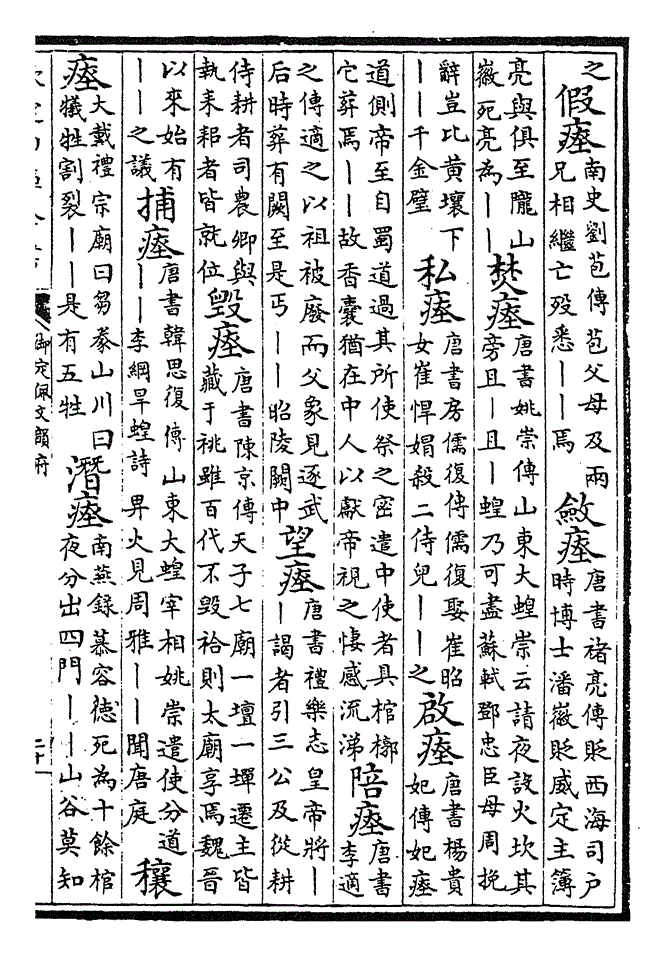 之
假瘞
南史劉苞傳苞父母及兩
兄相繼亡歿悉——焉
斂瘞
唐書褚亮傳貶西海司戶
時博士潘徽貶威定主簿
亮與俱至隴山
徽死亮為——
焚瘞
唐書姚崇傳山東大蝗崇云請夜設火坎其
旁且—且—蝗乃可盡蘇軾鄧忠臣母周挽
辭豈比黃壤下
——千金璧
私瘞
唐書房儒復傳儒復娶崔昭
女崔悍媢殺二侍兒——之
啟瘞
唐書楊貴
妃傳妃瘞
道側帝至自蜀道過其所使祭之密遣中使者具棺槨
它葬焉——故香囊猶在中人以獻帝視之悽感流涕
陪瘞
唐書
李適
之傳適之以祖被廢而父象見逐武
后時葬有闕至是丐——昭陵闕中
望瘞
唐書禮樂志皇帝將—
—謁者引三公及從耕
侍耕者司農卿與
執耒耜者皆就位
毀瘞
唐書陳京傳天子七廟一壇一墠遷主皆
藏于祧雖百代不毀祫則太廟享焉魏晉
以來始有
——之議
捕瘞
唐書韓思復傳山東大蝗宰相姚崇遣使分道
——李綱旱蝗詩畀火見周雅——聞唐庭
穰
瘞
大戴禮宗廟曰芻豢山川曰
犧牲割裂——是有五牲
潛瘞
南燕錄慕容德死為十餘棺
夜分出四門——山谷莫知
御定佩文韻府